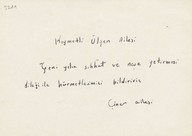 Kıymetli Ülgen ailesi
Yeni yılın sıhhat ve neşe getirmesi
dileği ile hürmetlerimizi bildiririz
ailesi